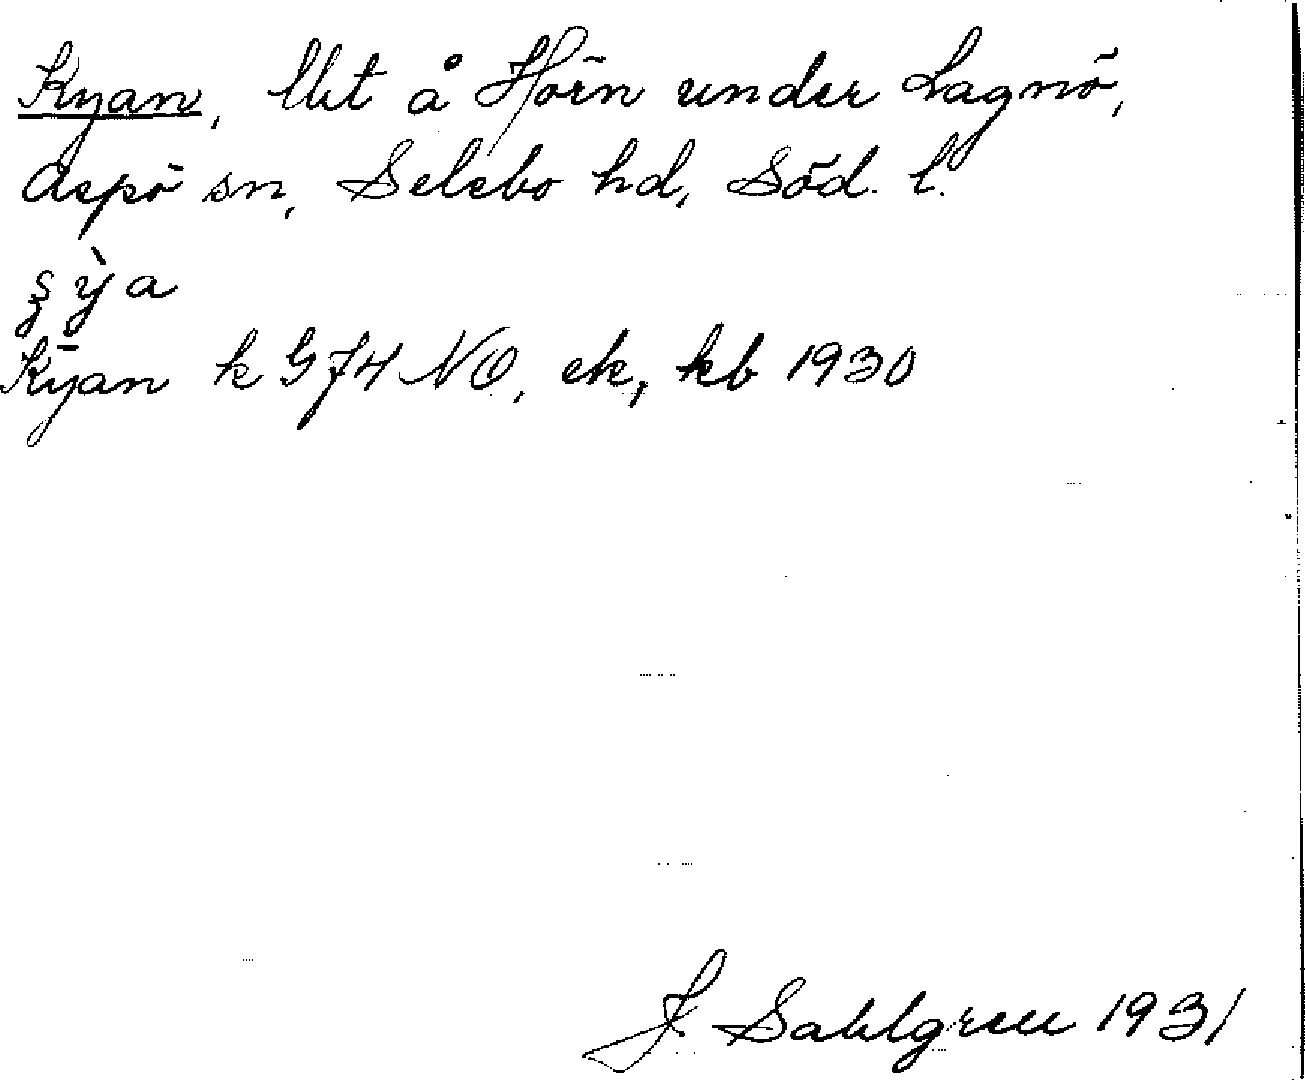 Kyan, lht å Hörn under Lagnö,
Aspö sn, Selebo hd, Söd. l.
Kȳan k G74 NO, ek, kb 1930
J. Sahlgren 1931